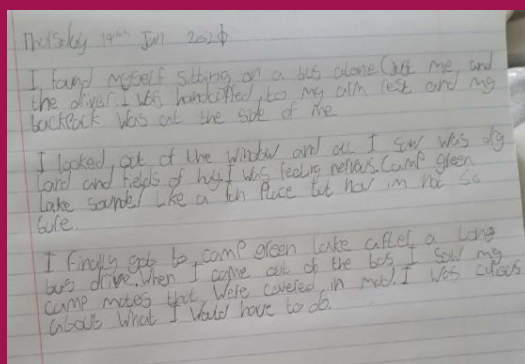 Thursday 14th Jan 2021
I found myself sitting on a bus alone (Just me, and
the driver. I was handcuffed, to my arm rest and my
backpack was at the side of me.
I looked, out of the window and all I saw was dry
Land and fields of hay. I was feeling nervous. Camp green
Lake sounds like a fun Place but now im not so
sure.
I finally got to, camp green lake after a long
bus drive. When I came out of the bus I saw my
camp mates that were covered, in mud. I was curious
about what I would have to do.